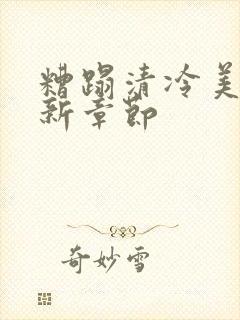 糟蹋清冷美
新章节
奇妙雪